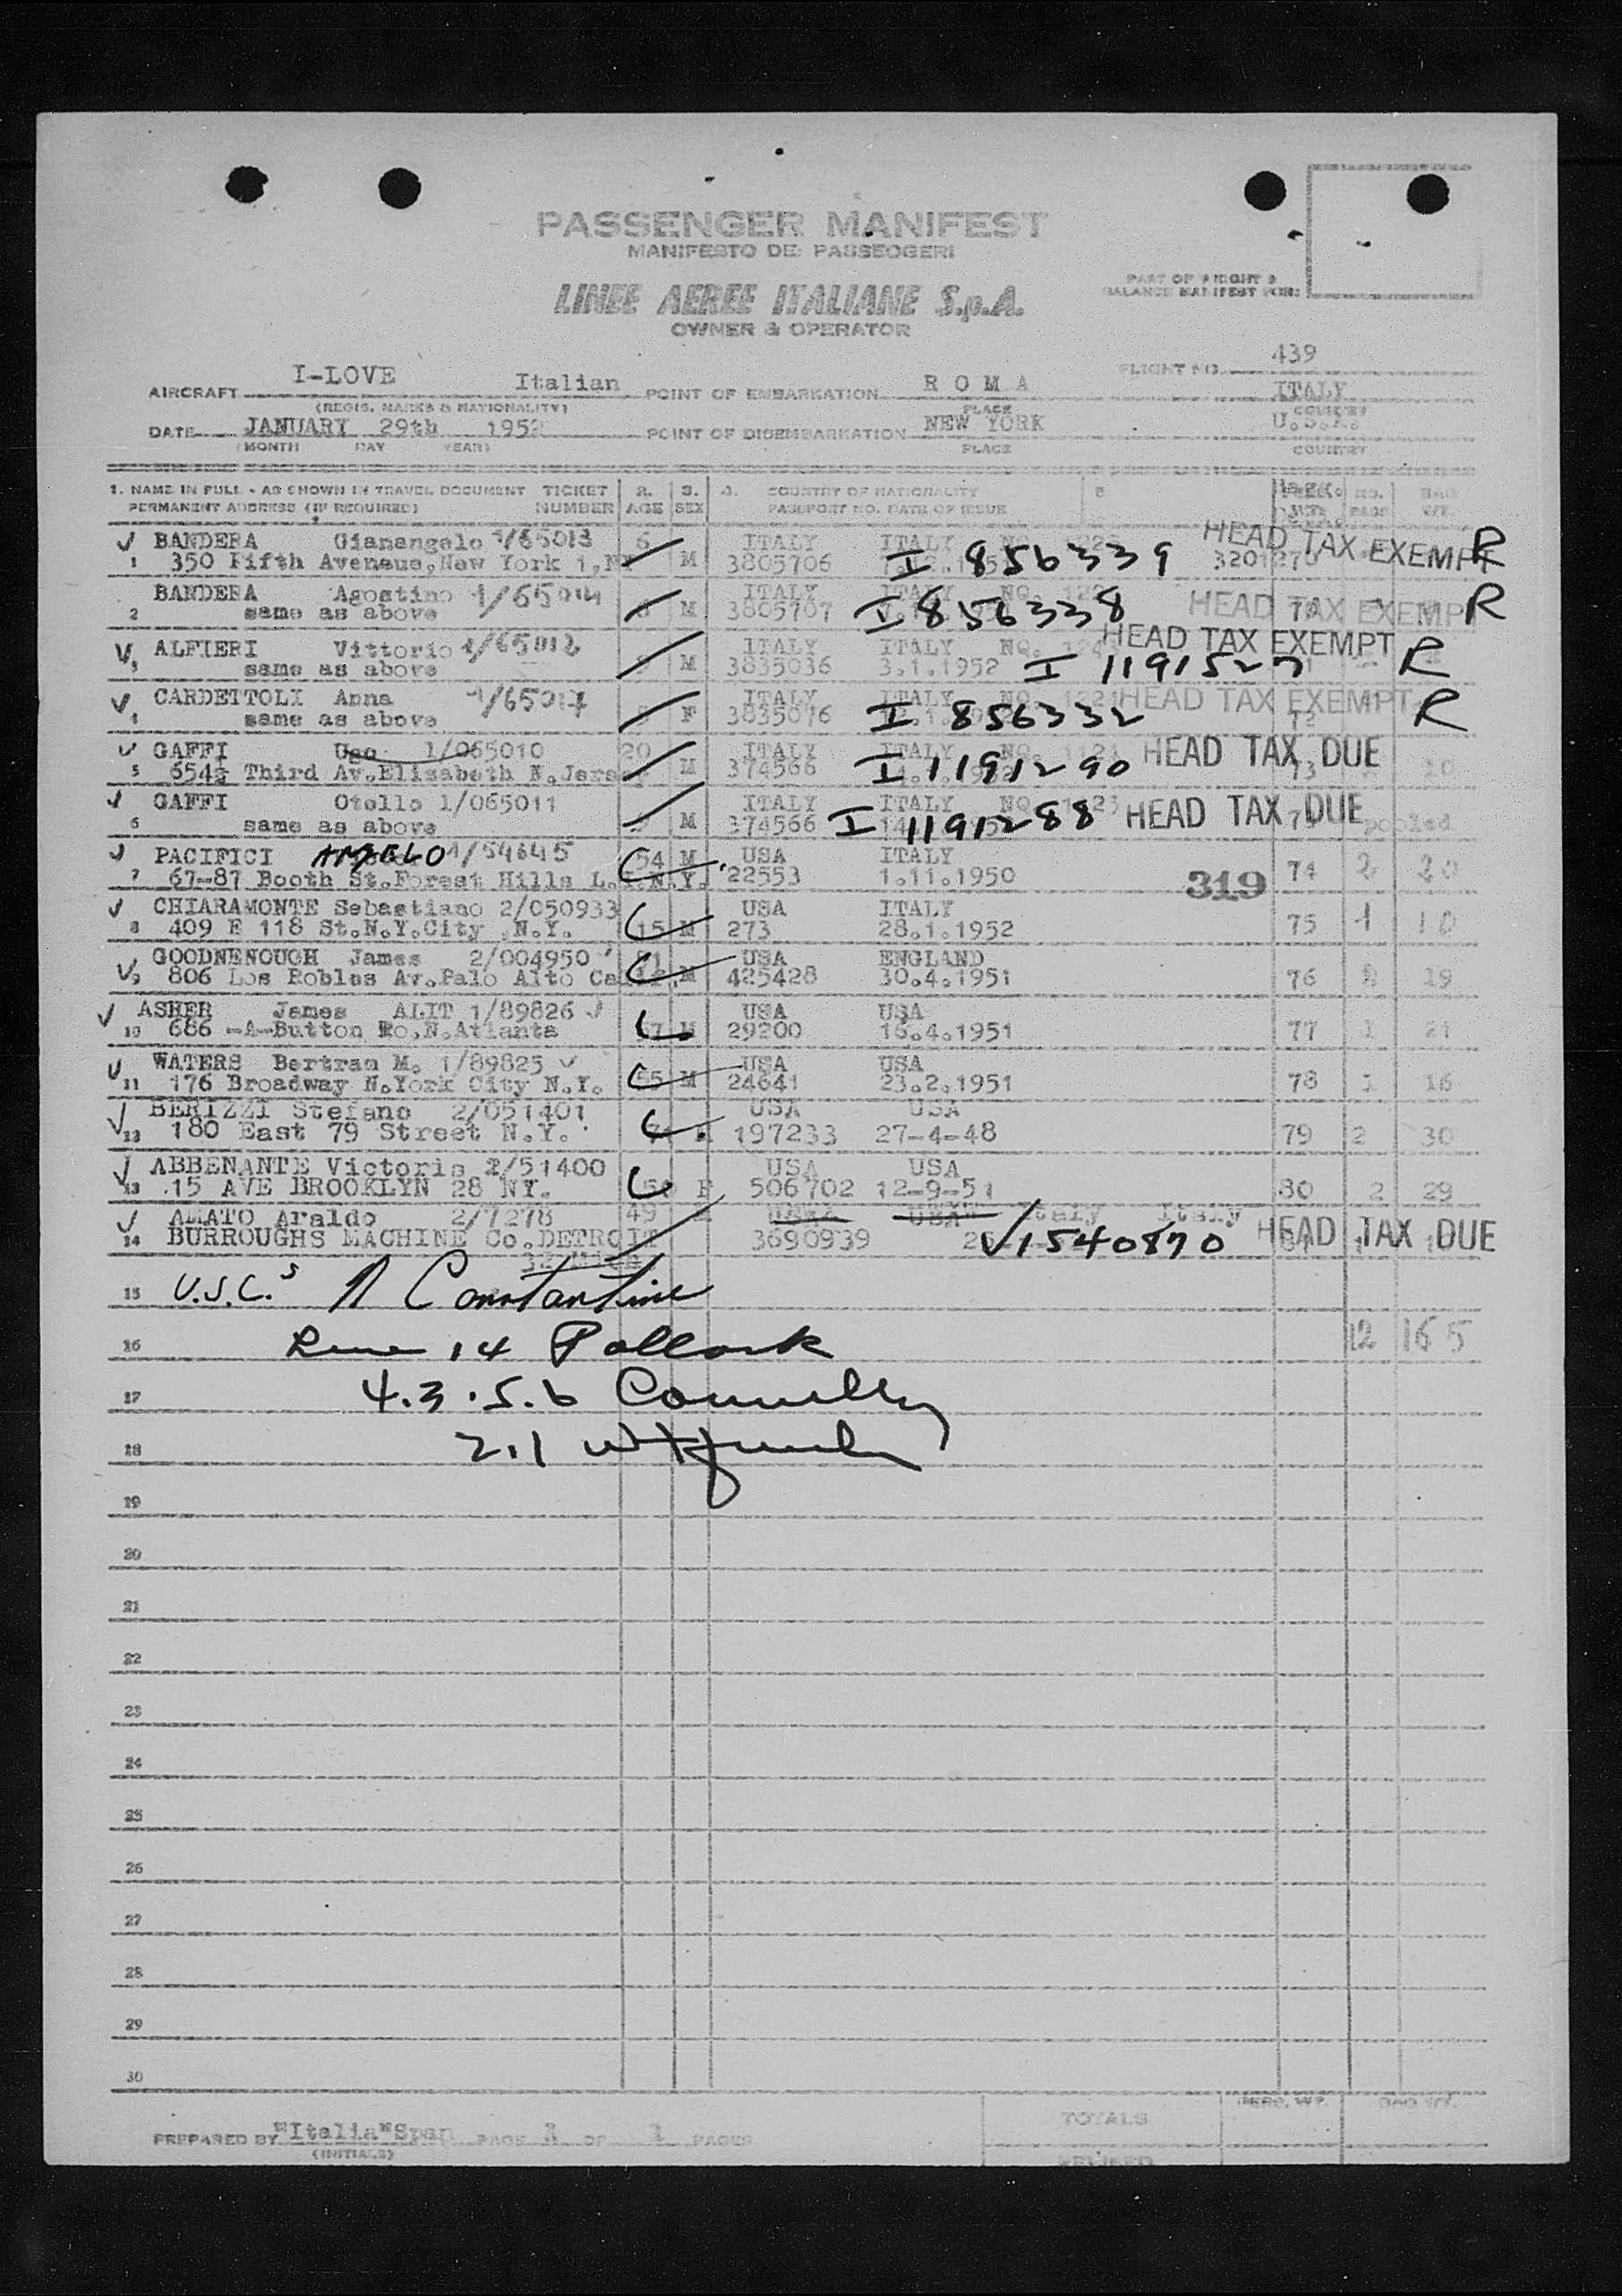 PASSENGER MANIFEST
MANIFESTO DEI PASSEGGERI
LINEE AEREE ITALIANE S.p.A.
OWNER & OPERATOR
PART OF WEIGHT &
BALANCE MANIFEST FOR:
AIRCRAFT I-LOVE Italian POINT OF EMBARKATION R O M A FLIGHT NO. 439
ITALY
(REGIS. MARKS & NATIONALITY) PLACE COUNTRY
DATE JANUARY 29th 1952 POINT OF DISEMBARKATION NEW YORK U.S.A.
(MONTH DAY YEAR) PLACE COUNTRY
1. NAME IN FULL - AS SHOWN IN TRAVEL DOCUMENT TICKET 2. 3. 4. COUNTRY OF NATIONALITY NO. BAG
PERMANENT ADDRESS (IF REQUIRED) NUMBER AGE SEX PASSPORT NO. DATE OF ISSUE WT.
BANDERA Gianangelo 1/65013 6 ITALY ITALY NO. HEAD TAX EXEMPT R
1 350 Fifth Aveneue, New York 1, NY M 3805706 I 856339
BANDERA Agostino 1/65014 ITALY ITALY NO. HEAD TAX EXEMPT R
2 same as above M 3805707 I 856338
ALFIERI Vittorio 1/65012 ITALY ITALY NO. HEAD TAX EXEMPT R
3 same as above M 3835036 3.1.1952 I 1191527
CARDETTOLI Anna 1/65017 ITALY ITALY NO. 1221 HEAD TAX EXEMPT R
4 same as above F 3835076 I 856332 72
GAFFI Ugo 1/065010 20 ITALY ITALY NO. 1121 HEAD TAX DUE
5 654½ Third Av.Elisabeth N.Jers M 374566 I 1191290 73 10
GAFFI Otello 1/065011 ITALY ITALY NO. HEAD TAX DUE
6 same as above M 374566 I 1191288 pooled
PACIFICI ANGELO 1/54645 54 M USA ITALY
7 67-87 Booth St.Forest Hills L.I.N.Y. 22553 1.11.1950 319 74 2 20
CHIARAMONTE Sebastiano 2/050933 USA ITALY
8 409 E 118 St.N.Y.City N.Y. 15 M 273 28.1.1952 75 1 10
GOODNENOUGH James 2/004950 USA ENGLAND
9 806 Los Robles Av.Palo Alto Ca M 425428 30.4.1951 76 19
ASHER James ALIT 1/89826 USA USA
10 686 -A-Button Ro,N.Atlanta 57 M 29200 16.4.1951 77 1 21
WATERS Bertram M. 1/89825 USA USA
11 176 Broadway N.York City N.Y. 55 M 24641 23.2.1951 78 1 16
BERIZZI Stefano 2/051401 USA USA
12 180 East 79 Street N.Y. 71 197233 27-4-48 79 2 30
ABBENANTE Victoria 2/51400 USA USA
13 15 AVE BROOKLYN 28 NY. F 506702 12-9-51 80 2 29
AMATO Araldo 2/7278 49 USA USA Italy Italy HEAD TAX DUE
14 BURROUGHS MACHINE Co.DETROIT 3690939 V1540870
15 U.S.C.s N Constantine
16 Line 14 Pollack 12 165
17 4.3.5.6 Connelly
18 2.1
19
20
21
22
23
24
25
26
27
28
29
30
PREPARED BY "Italia"Span PAGE 1 OF 1 PAGES TOTALS PERS. WT. BAG WT.
(INITIALS)